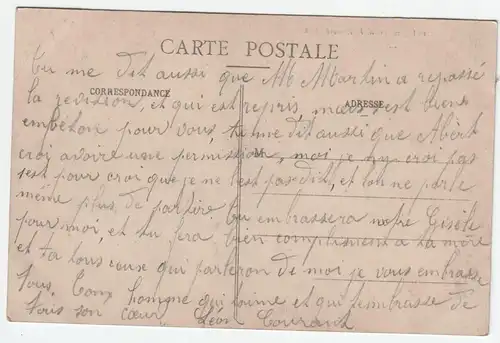 CARTE POSTALE
CORRESPONDANCE
ADRESSE
Tu me dit aussi que Mr Martin a repassé
la revision, et qui est repris, mais s'est bien
embétan pour vous, tu me dit aussi que Albert
croi avoire une permission, moi je n'y croi pas
sest pour croi que je ne lest pas dit, et lon ne parle
même plus de partire tu embrassera notre Gisèle
pour moi, et tu fera bien complimient a ta mère
et ta tous ceuse qui parleron de moi je vous embrasse
Tous Ton homme qui t'aime et qui t'embrasse de
Tous son cœur Léon Courant